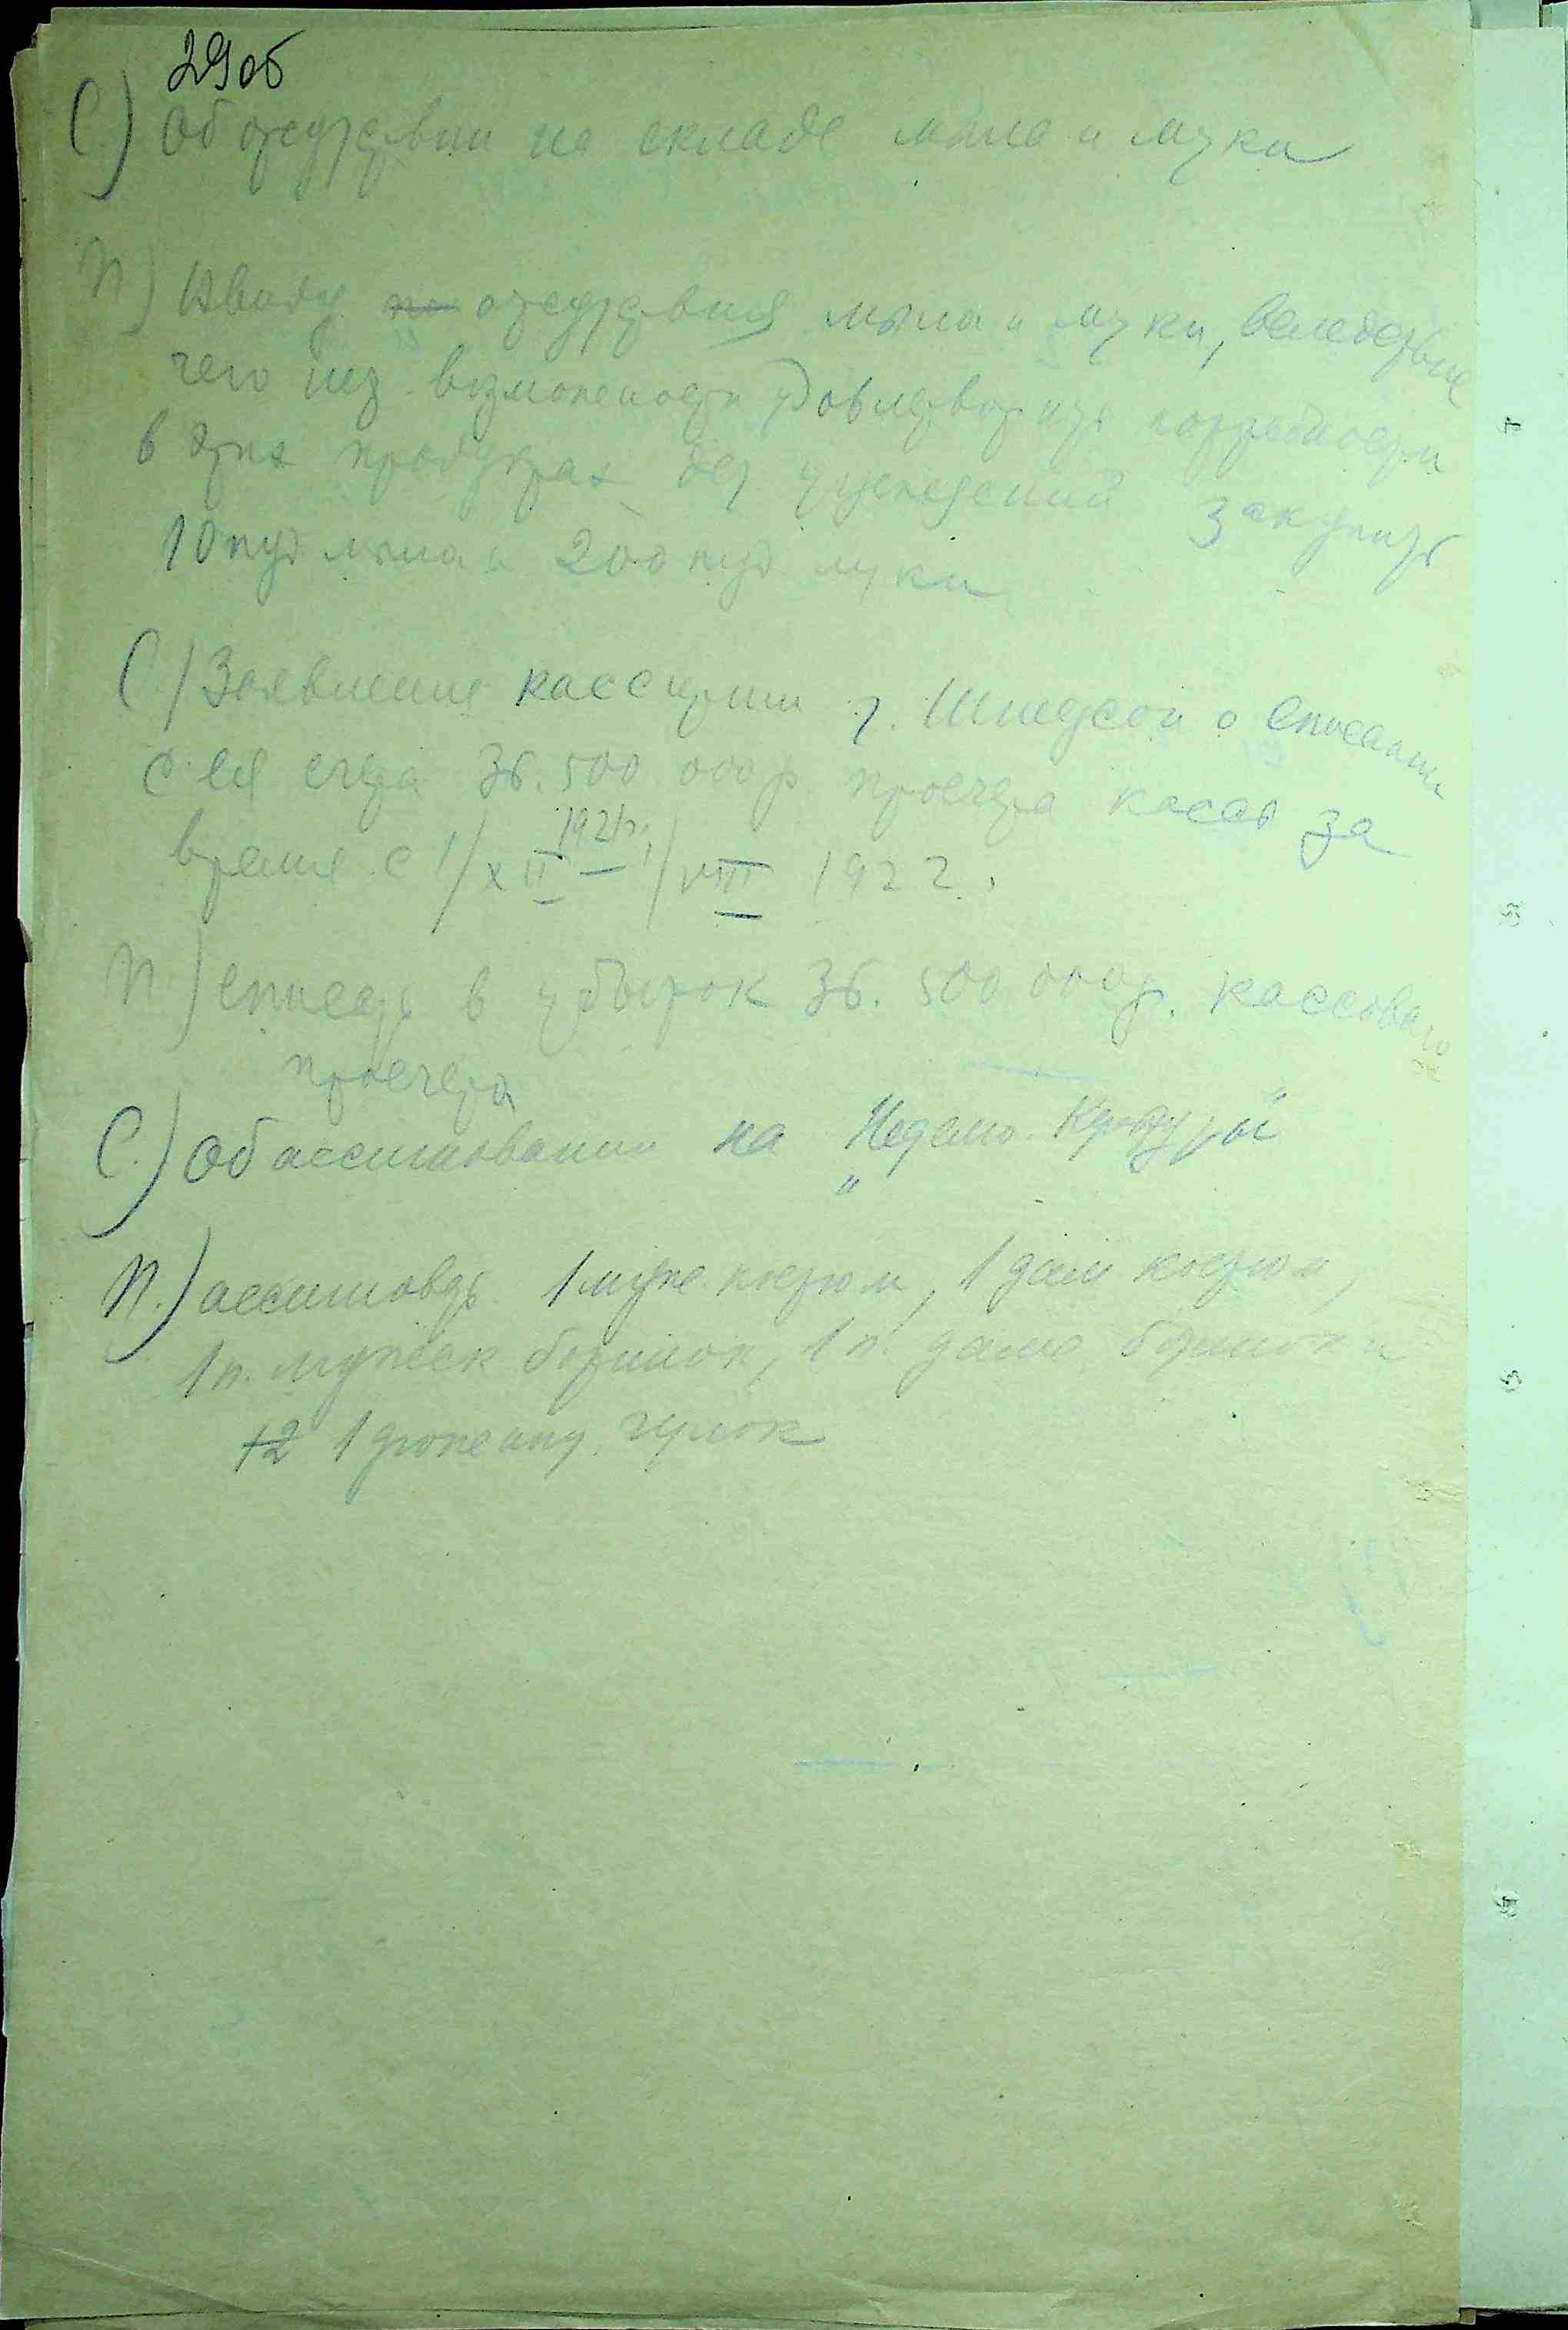 29об
С.) Об отсутствии на складе мыла и муки
П.) Ввиду отсутствия мыла и муки, вследствие
чего нет возможности удовлетворить потребности
в этих продуктах дет учреждений закупить
10 пуд мыла и 200 пуд муки
С.) Заявление кассирши т. о списании
с ея счета 36.500 000 р. просчета кассы за
время с 1/XII 1921 г. – 1/VIII 1922.
П.) списать в убыток 36.500 000 р. кассоваго
просчета
С.) Об ассигновании на „Неделю"
П.) ассигновать 1 муж. костюм, 1 дам костюм,
1 п. мужск ботинок, 1 п. дамс ботинок и
12 1 дюжину чулок